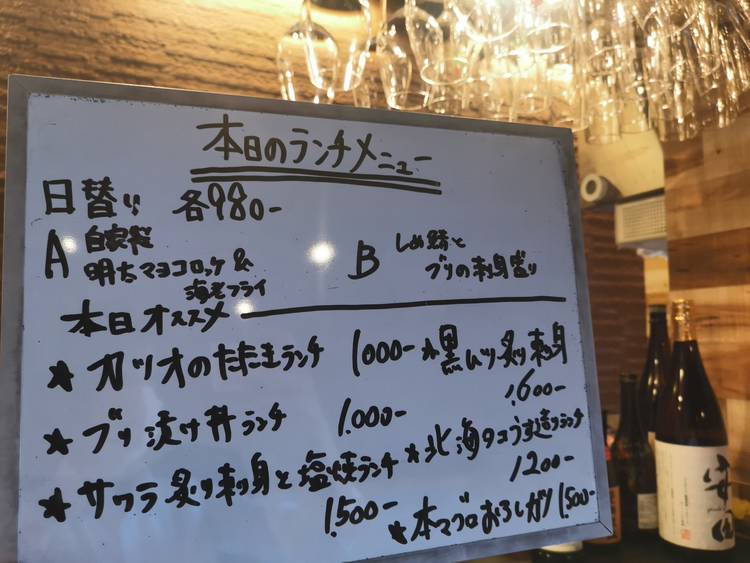 本日のランチメニュー
日替り 各980-
A 自家製
明太マヨコロッケ &
海老フライ
B しめ鯖と
ブリの刺身盛り
本日オススメ
★ カツオのたたきランチ 1000-
★ 黒ムツ炙り刺身
1,600-
★ ブリ漬け丼ランチ 1.000-
★ 北海タコぶつ造りランチ
1200-
★ サワラ炙り刺身と塩焼ランチ
1.500-
★ 本マグロおろしガリ 1,500-
安田